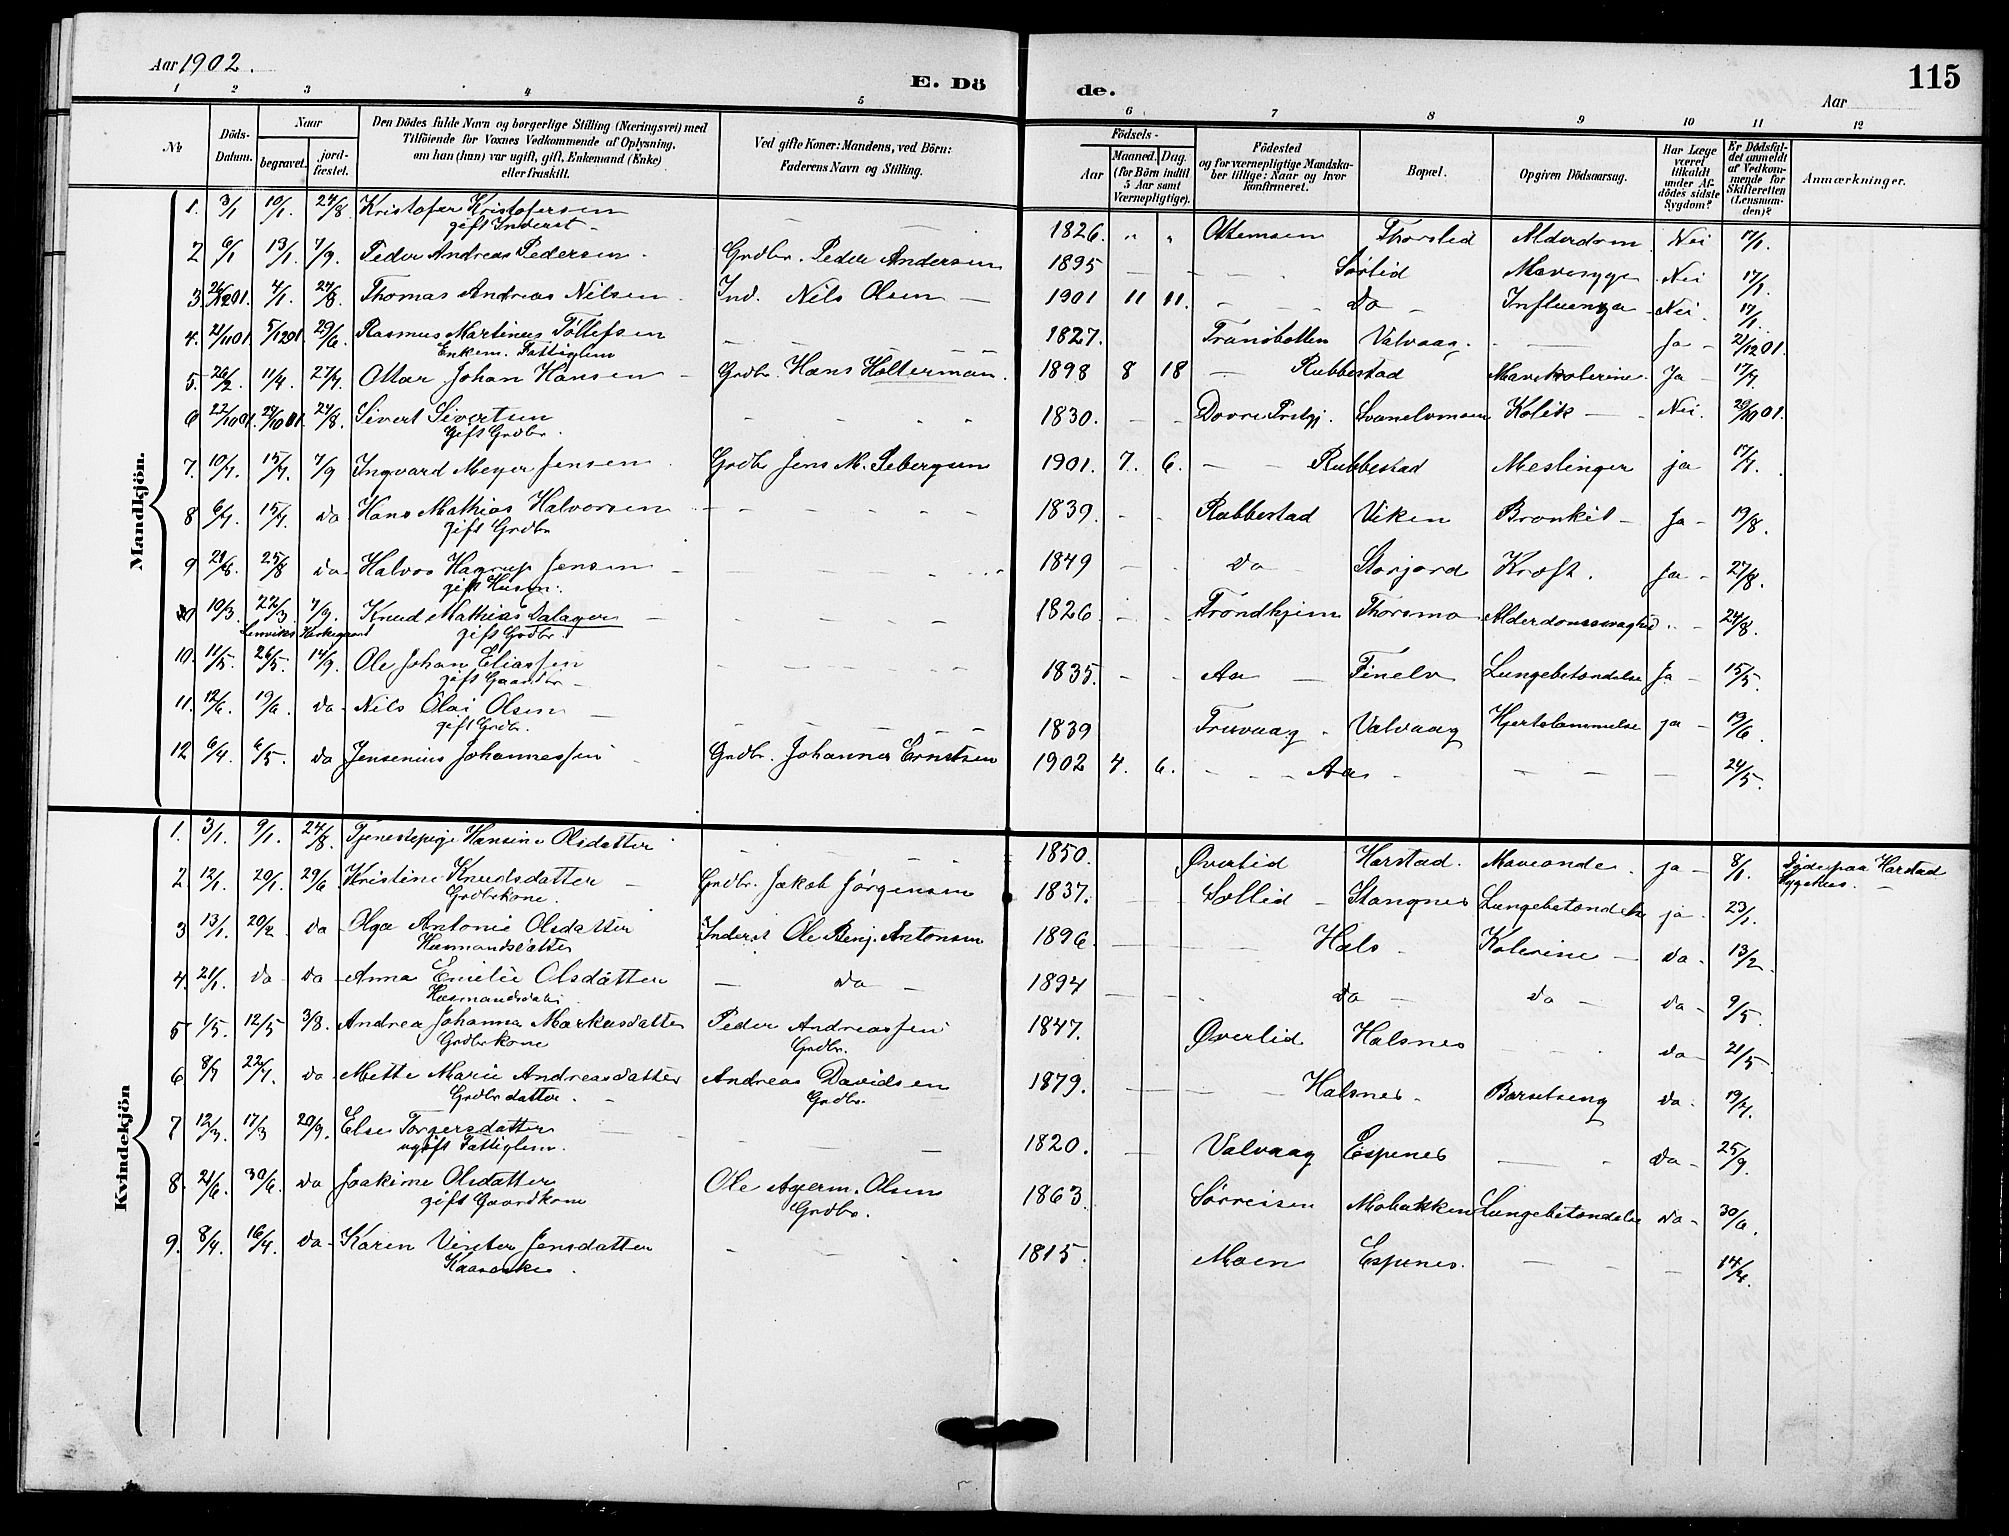 Aar 1902.
E. Dö de.
115
Aar
1 2 3 4 5 6 7 8 9 10 11 12
No
Döds-Datum.
Naar
begravet.
jord-fæstet.
Den Dödes fulde Navn og borgerlige Stilling (Næringsvei) med
Tilföiende for Voxnes Vedkommende af Oplysning,
om han (hun) var ugift, gift, Enkemand (Enke)
eller fraskilt.
Ved gifte Koner: Mandens, ved Börn:
Faderens Navn og Stilling.
Födsels-
Aar
Maaned. Dag.
(for Börn indtil
5 Aar samt
Værnepligtige).
Födested
og for værnepligtige Mandska-
ber tillige: Naar og hvor
konfirmeret.
Bopæl.
Opgiven Dödsaarsag.
Har Læge
været
tilkaldt
under Af-
dödes sidste
Sygdom?
Er Dödsfal-
det anmeldt
af Vedkom-
mende for
Skifteretten
(Lensman-
den)?
Anmærkninger.
Mandkjön.
1. 3/1 10/1. 24/8 Kristofer Kristofersen — 1826. " " Thorslid Alderdom Nei 17/1.
gift Inderst
2 6/1 13/1. 7/9. Peder Andreas Pedersen. Grdbr. Peder Andersen 1895 — Sørlid Mavesyge Nei 17/1.
3. 4/1. 24/8. Thomas Andreas Nilsen. Ind. Nils Olsen — 1901 11 11. Do Influenza Nei. 17/1.
4. 21/11 01 5/12 01. 29/6. Rasmus Martinus Tollefsen — 1827. Tranøbotten Valvaag. — Ja — 21/12 01.
Enkem. Fattiglem
5. 26/2. 11/4. 27/7. Ottar Johan Hansen — Grdbr. Hans Holterman. 1898 8 18 — Rubbestad Mavekolerine. Ja — 17/7.
6 22/10 01. 27/10 01. 24/8. Sivert Sivertsen 1830. Dovre Prstgj. Svanelvmoen Kolik — Nei 01.
Gift Grdbr.
7. 10/7. 15/7. 7/9 Ingvard Meyer Jensen Grdbr Jens M. Sebergsen 1901. 7. 6. — Rubbestad Meslinger ja 17/7.
8 6/7. 15/7. do Hans Mathias Halvorsen 1839. Rubbestad Viken Bronkit — Ja — 19/8.
gift Grdbr
9 25/8 do Halvor Hagrup Jensen 1849 do Storjord Kræft. Ja — 27/8.
gift Husm.
10/3. 22/3. 7/9. Knud Mathias Dalager 1826. Trondhjem Thorsmo Alderdomssvaghed 24/8.
Lenviks Kirkegaard gift Grdbr.
10. 11/5. 26/5. 14/9. Ole Johan Eliassen 1835. Aa — Finelv Lungebetændelse Ja — 15/5.
gift Gaardbr —
11. 12/6. 19/6. do Nils Olai Olsen 1839 Truvaag Valvaag Hjertelammelse ja — 19/6.
gift Grdbr.
12 6/4. 6/5. do Jensenius Johannessen Grdbr. Johannes Erntsen 1902 4. 6. Aas — 24/5.
Kvindekjön
1. 3/1. 9/1. 24/8. Tjenestepige Hansine Olsdatter 1850. Øverlid Harstad. Maveonde ja — 8/1. Døde paa Harstad
Sygehus.
2 12/1. 20/1. 29/6 Kristine Knudsdatter Grdbr. Jakob Jørgensen 1837. Sollid — Stangnes Lungebetændelse ja 23/1.
Grdbrkone.
3 13/1. 20/2. do Olga Antonie Olsdatter Inderst Ole Benj. Antonsen 1896. Hals Kolerine — do — 13/2.
Husmandsdatter
4. 21/1. do do Anna Emelie Olsdatter — do — 1894 do — do — do — 9/5.
Husmandsdatter
5 1/5. 12/5 3/8. Andrea Johanna Markusdatter Peder Andreassen 1847. Øverlid Halsnes do 21/5
Grdbrkone Grdbr.
6 8/7 22/7. do Mette Marie Andreasdatter Andreas Davidsen 1879. Halsnes. Barselseng do — 19/7.
Grdbrdatter. Grdbr.
7 12/3. 17/3 20/9. Else Torgersdatter 1820. Valvaag Espenes — do — 25/9.
ugift Fattiglem.
8. 21/6. 30/6. do Joakime Olsdatter Ole Aperm. Olsen 1863 Sørreisen Mobakken Lungebetændelse do — 30/6.
gift Gaardkone Grdbr.
9. 8/4. 16/4. do — Karen Vinter Jensdatter 1815. Moen Espenes. — 14/4.
Kaarenke.